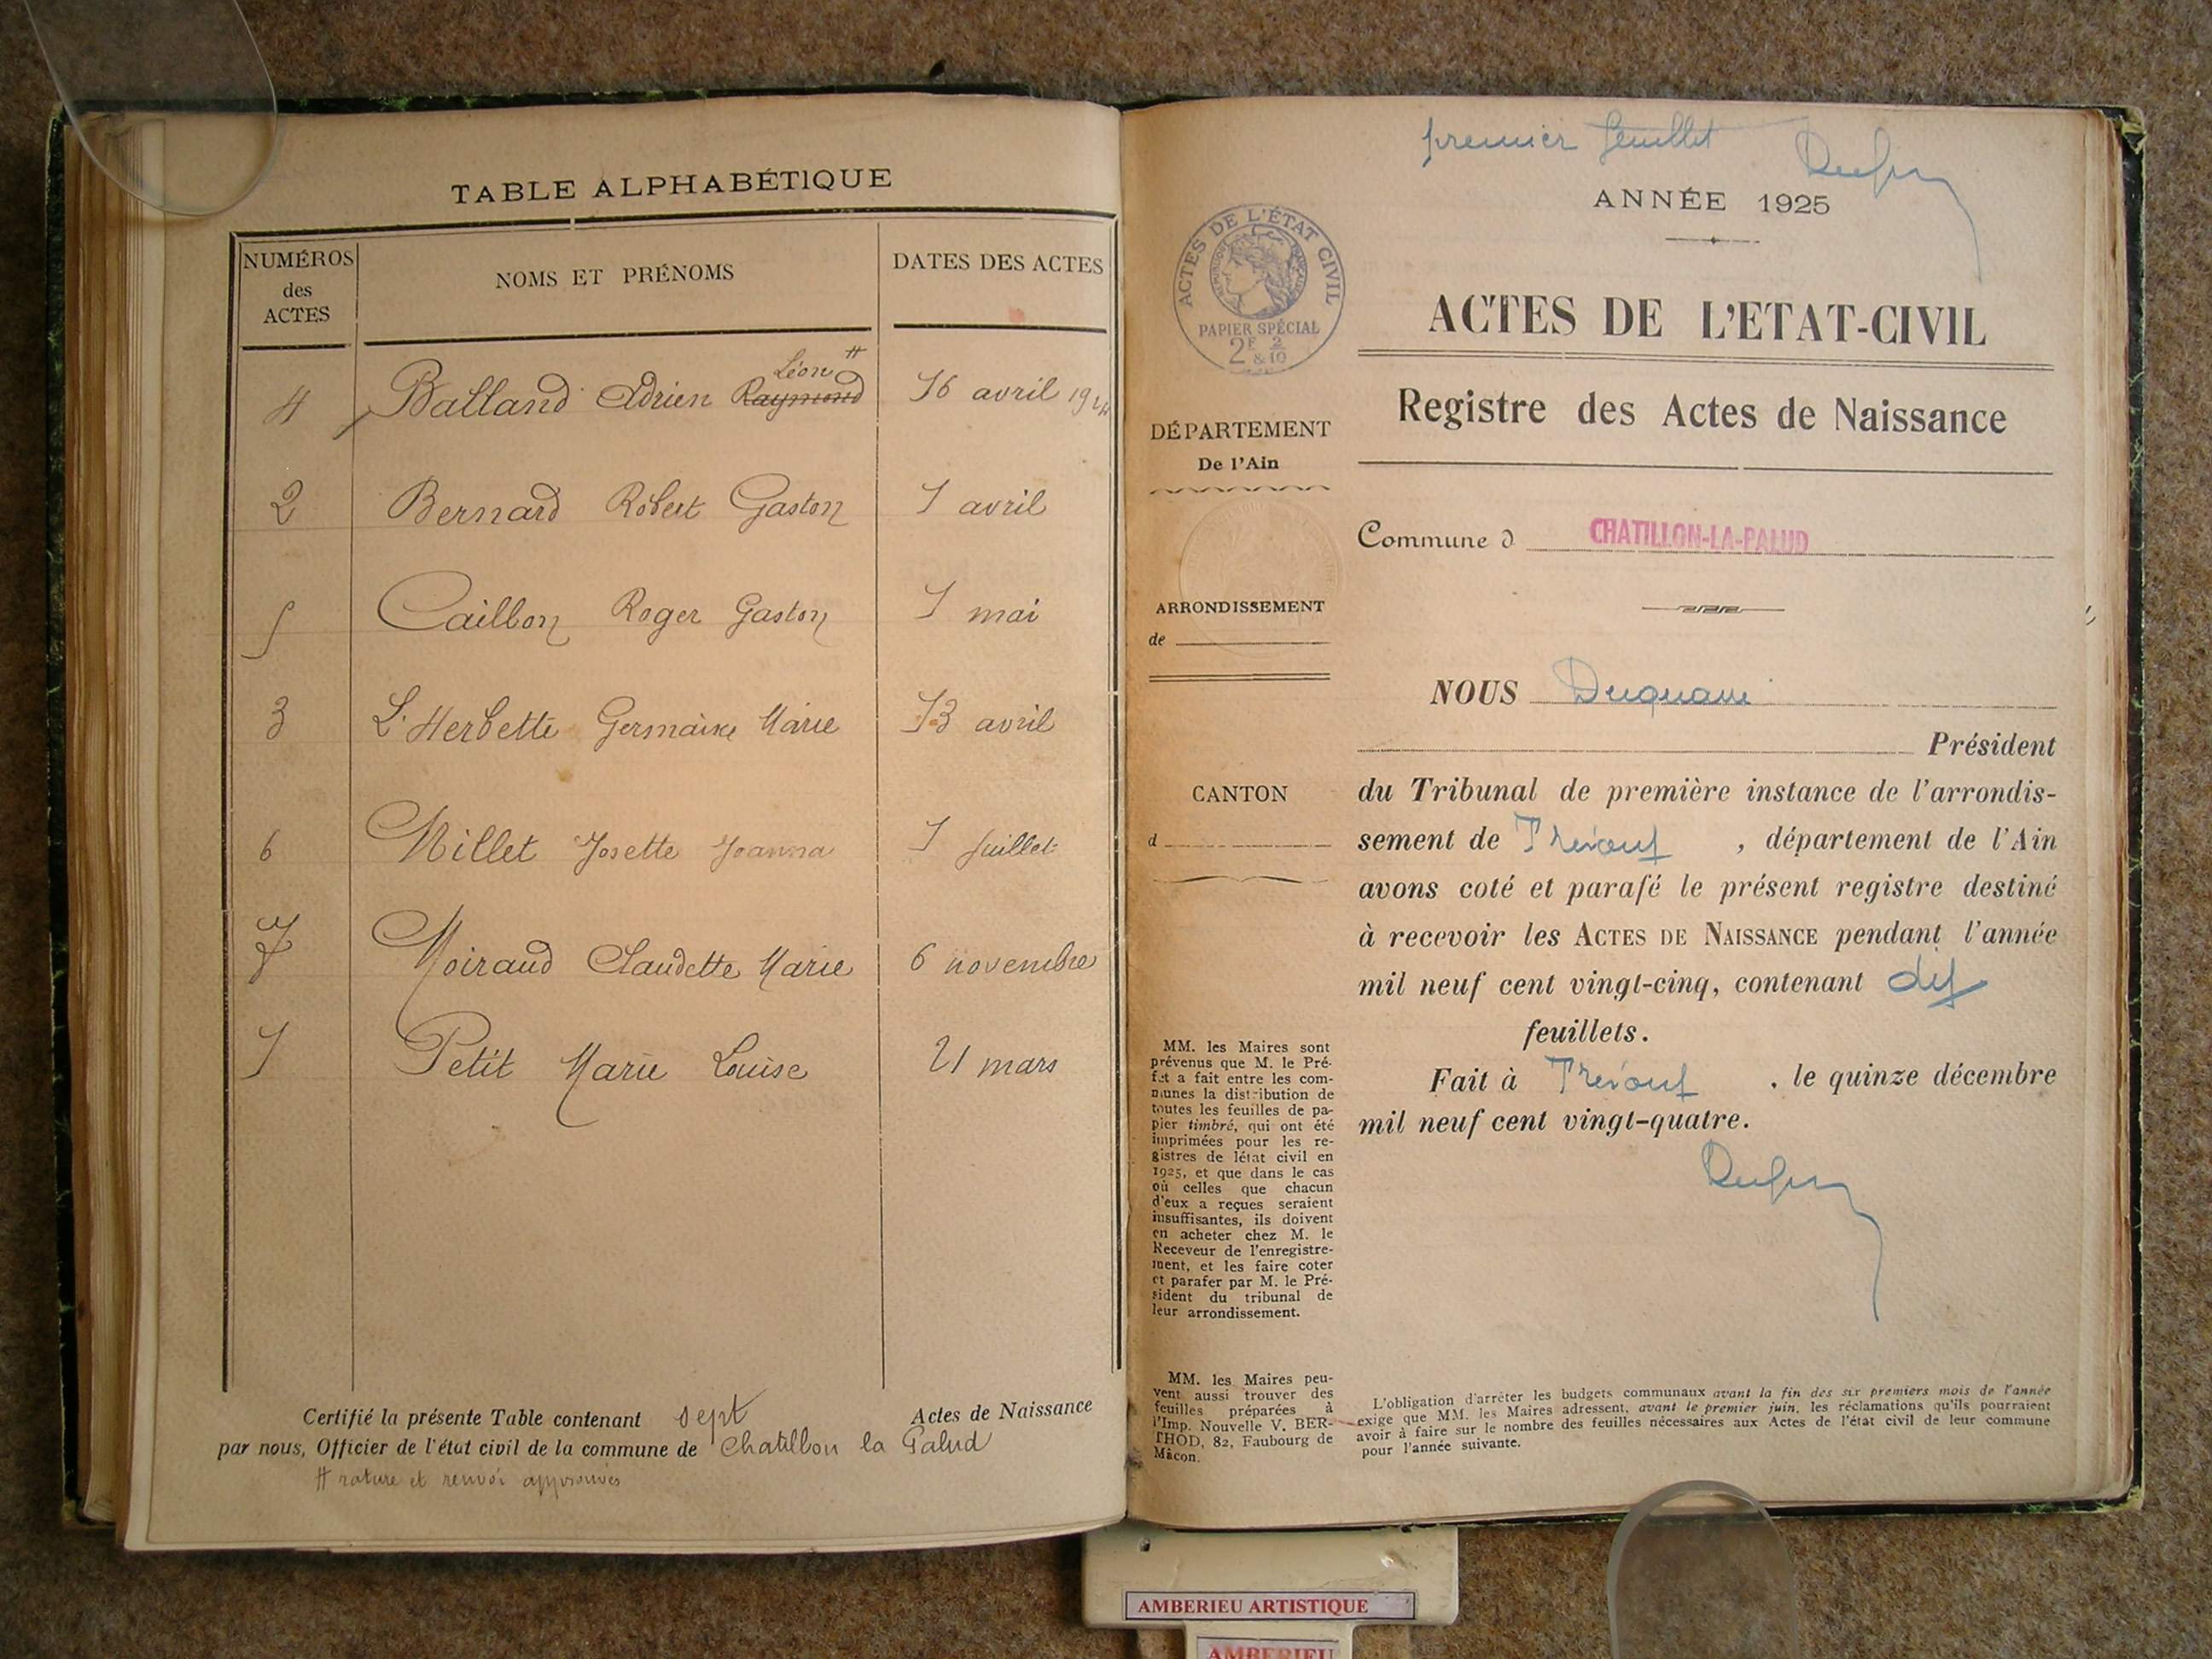 TABLE ALPHABÉTIQUE
NUMÉROS des ACTES NOMS ET PRÉNOMS DATES DES ACTES
4 Balland Adrien Raymond Léon # 16 avril 1924
2 Bernard Robert Gaston 1 avril
5 Caillon Roger Gaston 1 mai
3 L'Herbette Germaine Marie 13 avril
6 Millet Josette Joanna 1 Juillet
7 Moiraud Claudette Marie 6 novembre
1 Petit Marie Louise 21 mars
Certifié la présente Table contenant sept Actes de Naissance
par nous, Officier de l'état civil de la commune de Chatillon la Palud
# rature et renvoi approuvés
premier feuillet
ANNÉE 1925
ACTES DE L'ÉTAT CIVIL
RÉPUBLIQUE FRANÇAISE
PAPIER SPÉCIAL
2F & 2/10
ACTES DE L'ETAT-CIVIL
Registre des Actes de Naissance
DÉPARTEMENT
De l'Ain
Commune d CHATILLON-LA-PALUD
ARRONDISSEMENT
de
CANTON
d
NOUS
Président
du Tribunal de première instance de l'arrondis-
sement de Trévoux , département de l'Ain
avons coté et parafé le présent registre destiné
à recevoir les ACTES DE NAISSANCE pendant l'année
mil neuf cent vingt-cinq, contenant dix
feuillets.
Fait à Trévoux , le quinze décembre
mil neuf cent vingt-quatre.
MM. les Maires sont
prévenus que M. le Pré-
fet a fait entre les com-
munes la distribution de
toutes les feuilles de pa-
pier timbré, qui ont été
imprimées pour les re-
gistres de létat civil en
1925, et que dans le cas
où celles que chacun
d'eux a reçues seraient
insuffisantes, ils doivent
en acheter chez M. le
Receveur de l'enregistre-
ment, et les faire coter
et parafer par M. le Pré-
sident du tribunal de
leur arrondissement.
MM. les Maires peu-
vent aussi trouver des
feuilles préparées à
l'Imp. Nouvelle V. BER-
THOD, 82, Faubourg de
Mâcon.
L'obligation d'arrêter les budgets communaux avant la fin des six premiers mois de l'année
exige que MM. les Maires adressent, avant le premier juin, les réclamations qu'ils pourraient
avoir à faire sur le nombre des feuilles nécessaires aux Actes de l'état civil de leur commune
pour l'année suivante.
AMBERIEU ARTISTIQUE
AMBERIEU